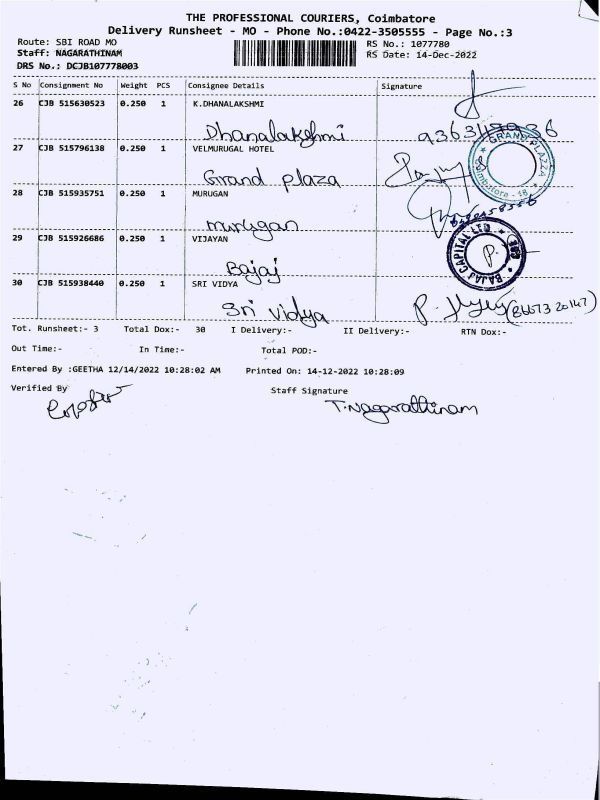 THE PROFESSIONAL COURIERS, Coimbatore
Delivery Runsheet - MO - Phone No.:0422-3505555 - Page No.:3
Route: SBI ROAD MO RS No.: 1077780
Staff: NAGARATHINAM RS Date: 14-Dec-2022
DRS No.: DCJB107778003
S No Consignment No Weight PCS Consignee Details Signature
26 CJB 515630523 0.250 1 K.DHANALAKSHMI
Dhanalakshmi
27 CJB 515796138 0.250 1 VELMURUGAL HOTEL
Grand plaza
GRAND PLAZZA
Coimbatore - 18
28 CJB 515935751 0.250 1 MURUGAN
murugan
29 CJB 515926686 0.250 1 VIJAYAN
Bajaj
BAJAJ CAPITAL LTD
30 CJB 515938440 0.250 1 SRI VIDYA
Sri vidya (86673 20147)
Tot. Runsheet:- 3 Total Dox:- 30 I Delivery:- II Delivery:- RTN Dox:-
Out Time:- In Time:- Total POD:-
Entered By :GEETHA 12/14/2022 10:28:02 AM Printed On: 14-12-2022 10:28:09
Verified By Staff Signature
T.Nagarathinam